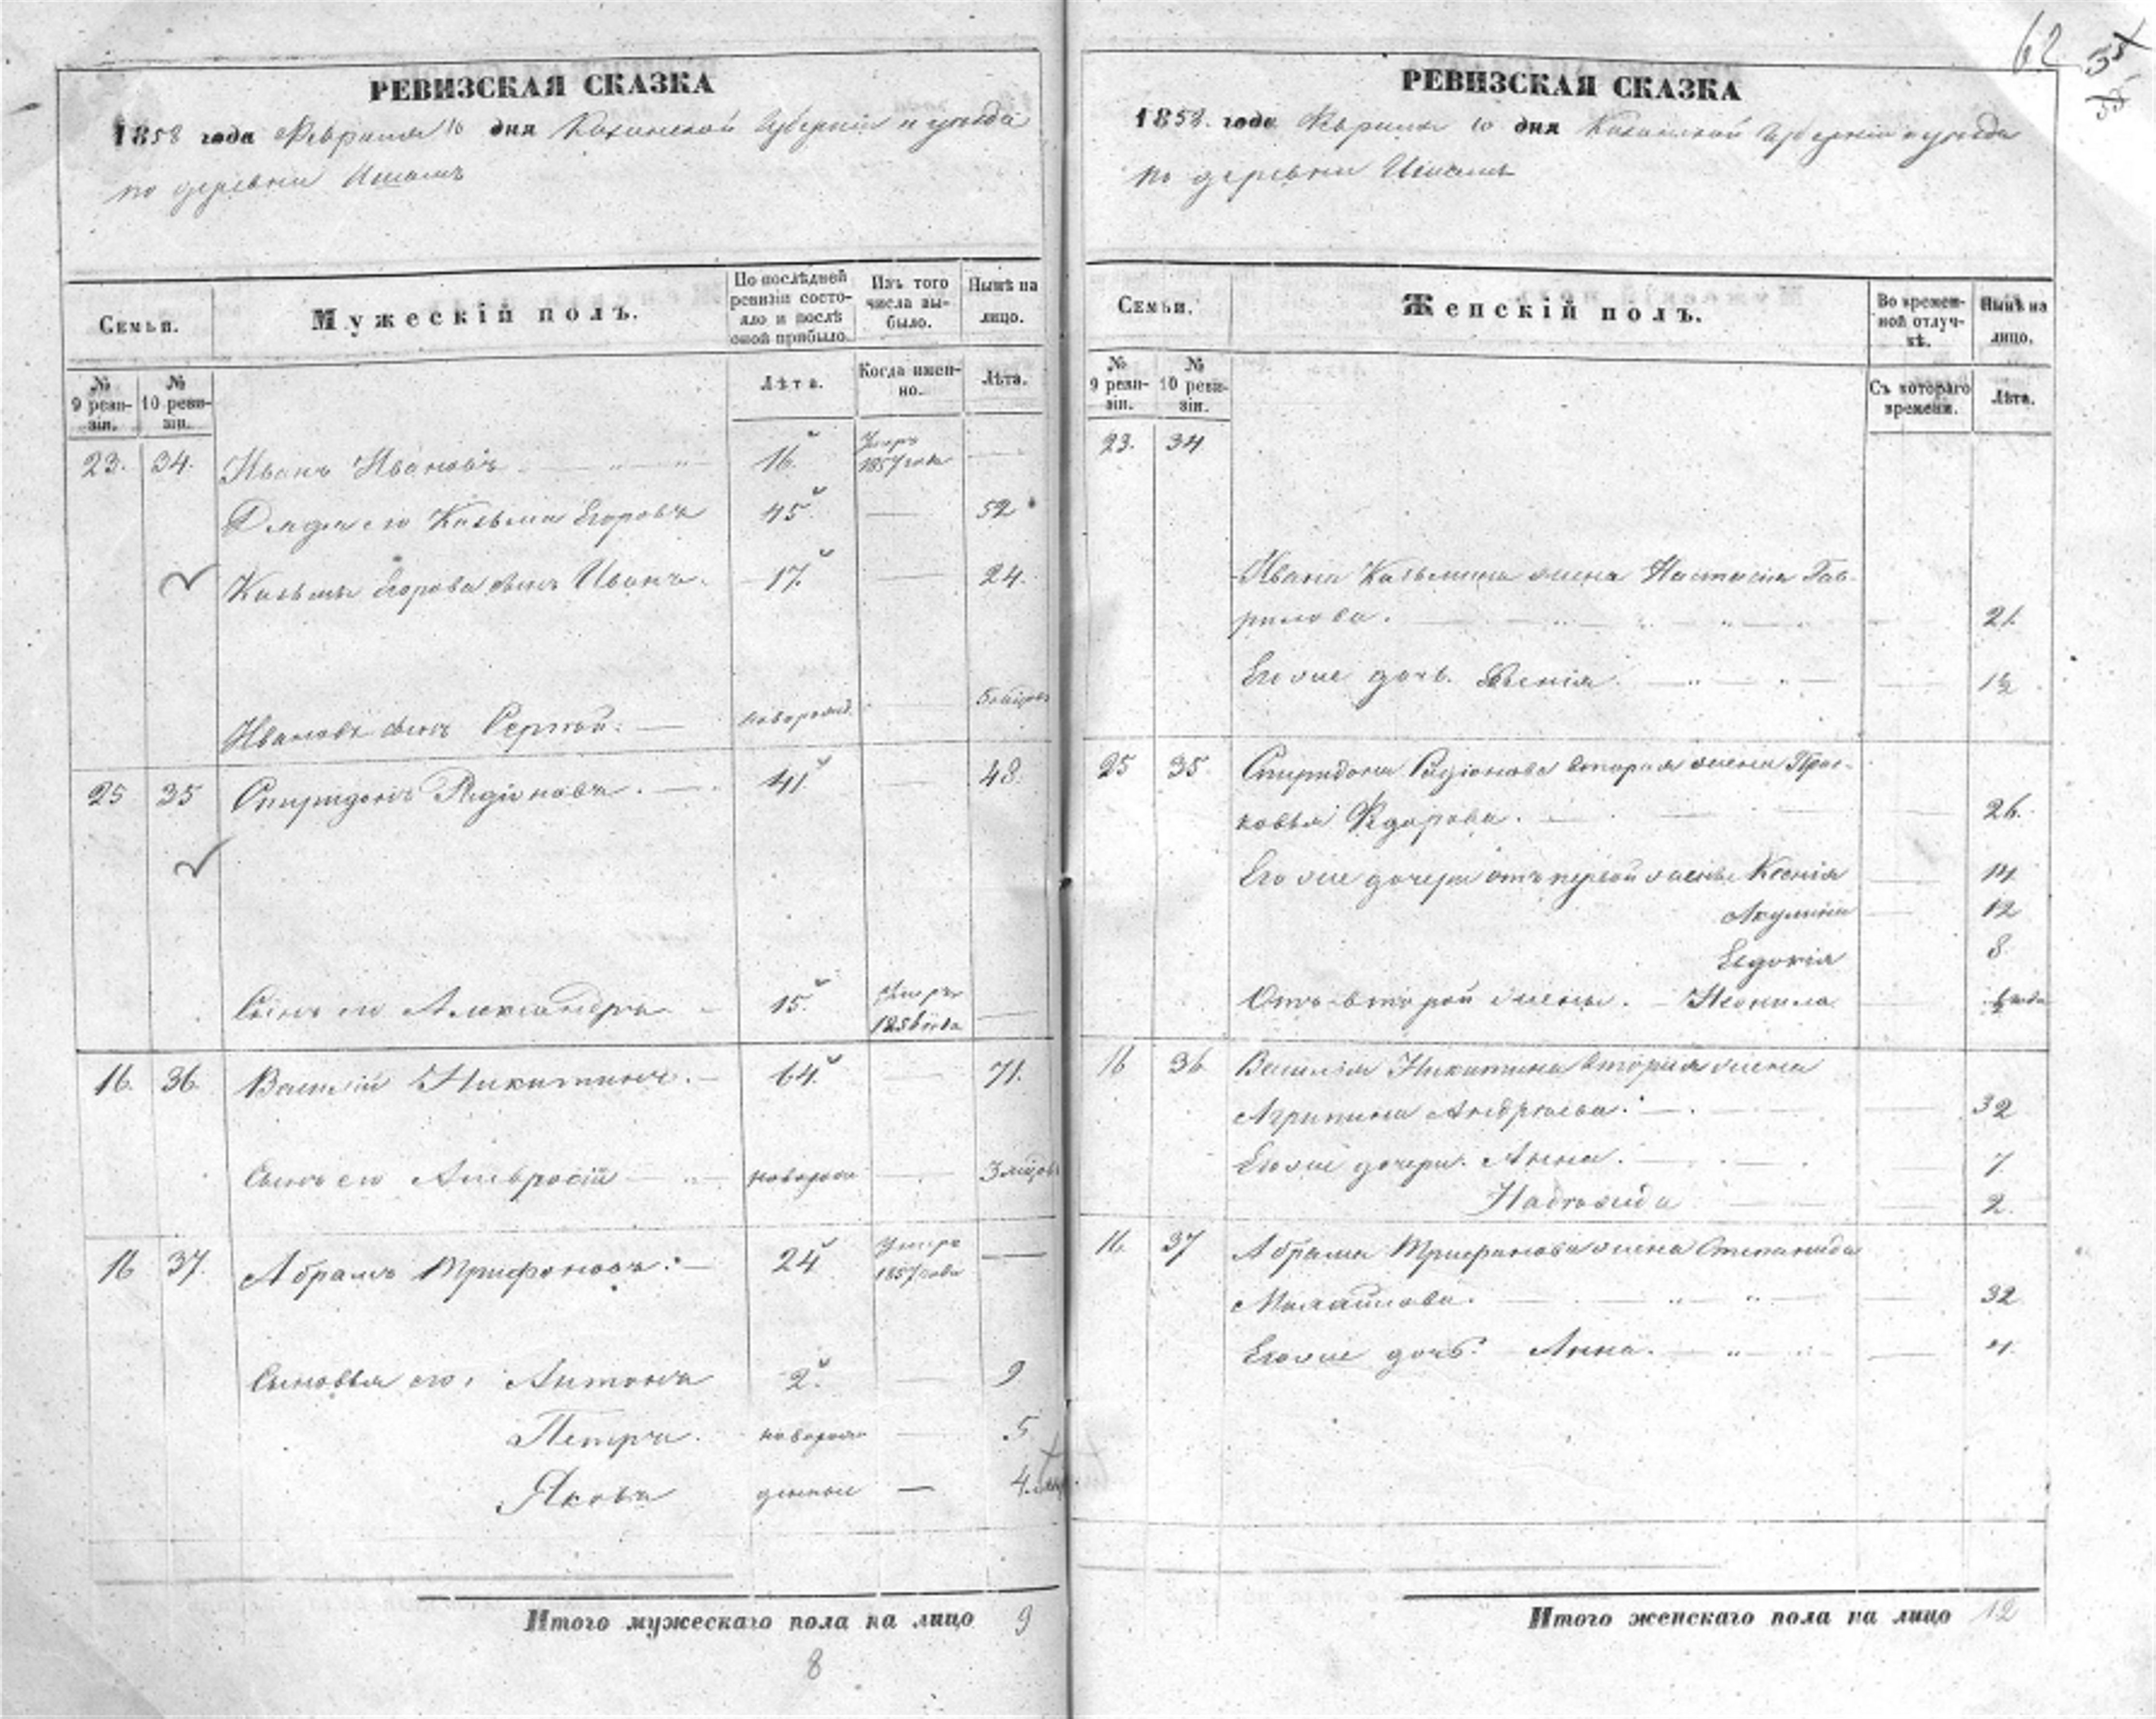 62
РЕВИЗСКАЯ СКАЗКА
1858 года Февраля 10 дня Казанской Губерніи и уезда
по деревни
Семьи.
Мужескій полъ.
По послѣдней ревизіи состояло и послѣ оной прибыло.
Изъ того числа выбыло.
Нынѣ на лицо.
№ 9 ревизіи.
№ 10 ревизіи.
Лѣта.
Когда именно.
Лѣта.
23. 34. Иванъ Ивановъ 16. Умеръ 1857 года —
Дядя его Козьма Егоровъ 45. — 52
Козьмы Егорова сынъ Иванъ. 17. — 24.
Ивановъ сынъ Сергѣй. — новорожд. —
25 35 Спиридонъ Родіоновъ. — 41. — 48.
Сынъ его Александръ 15. Умеръ 1856 года —
16. 36. Василій Никитинъ. — 64. — 71.
Сынъ его Амвросій — новорож — 3 мѣсяц
16 37. Абрамъ Трифоновъ. — 24 Умеръ 1857 года —
Сыновья его, Антонъ 2. — 9
Петръ. новорож — 5
Яковъ денные — 4.
Итого мужескаго пола на лицо 9
8
РЕВИЗСКАЯ СКАЗКА
1858. года Февраля 10 дня Казанской Губерніи и уезда
по деревни
Семьи.
Женскій полъ.
Во временной отлучкѣ.
Нынѣ на лицо.
№ 9 ревизіи.
№ 10 ревизіи.
Съ котораго времени.
Лѣта.
23. 34
Ивана Козьмина жена Настасія Гав-
рилова. 21.
Его же дочь 1½
25 35. Спиридона Родіонова вторая жена Прас-
ковья Федорова. 26.
Его же дочери отъ первой жены Ксенія 14
Акулина 12
Евдокія 8
Отъ второй жены. — Неонила
16 36 Василія Никитина вторая жена
Агрипина Андреева. 32
Его же дочери. Анна. 7
Надежида 2.
16. 37 Абрама Трифонова жена Степанида
Михайлова. 32
Его же дочь Анна. 4.
Итого женскаго пола на лицо 12